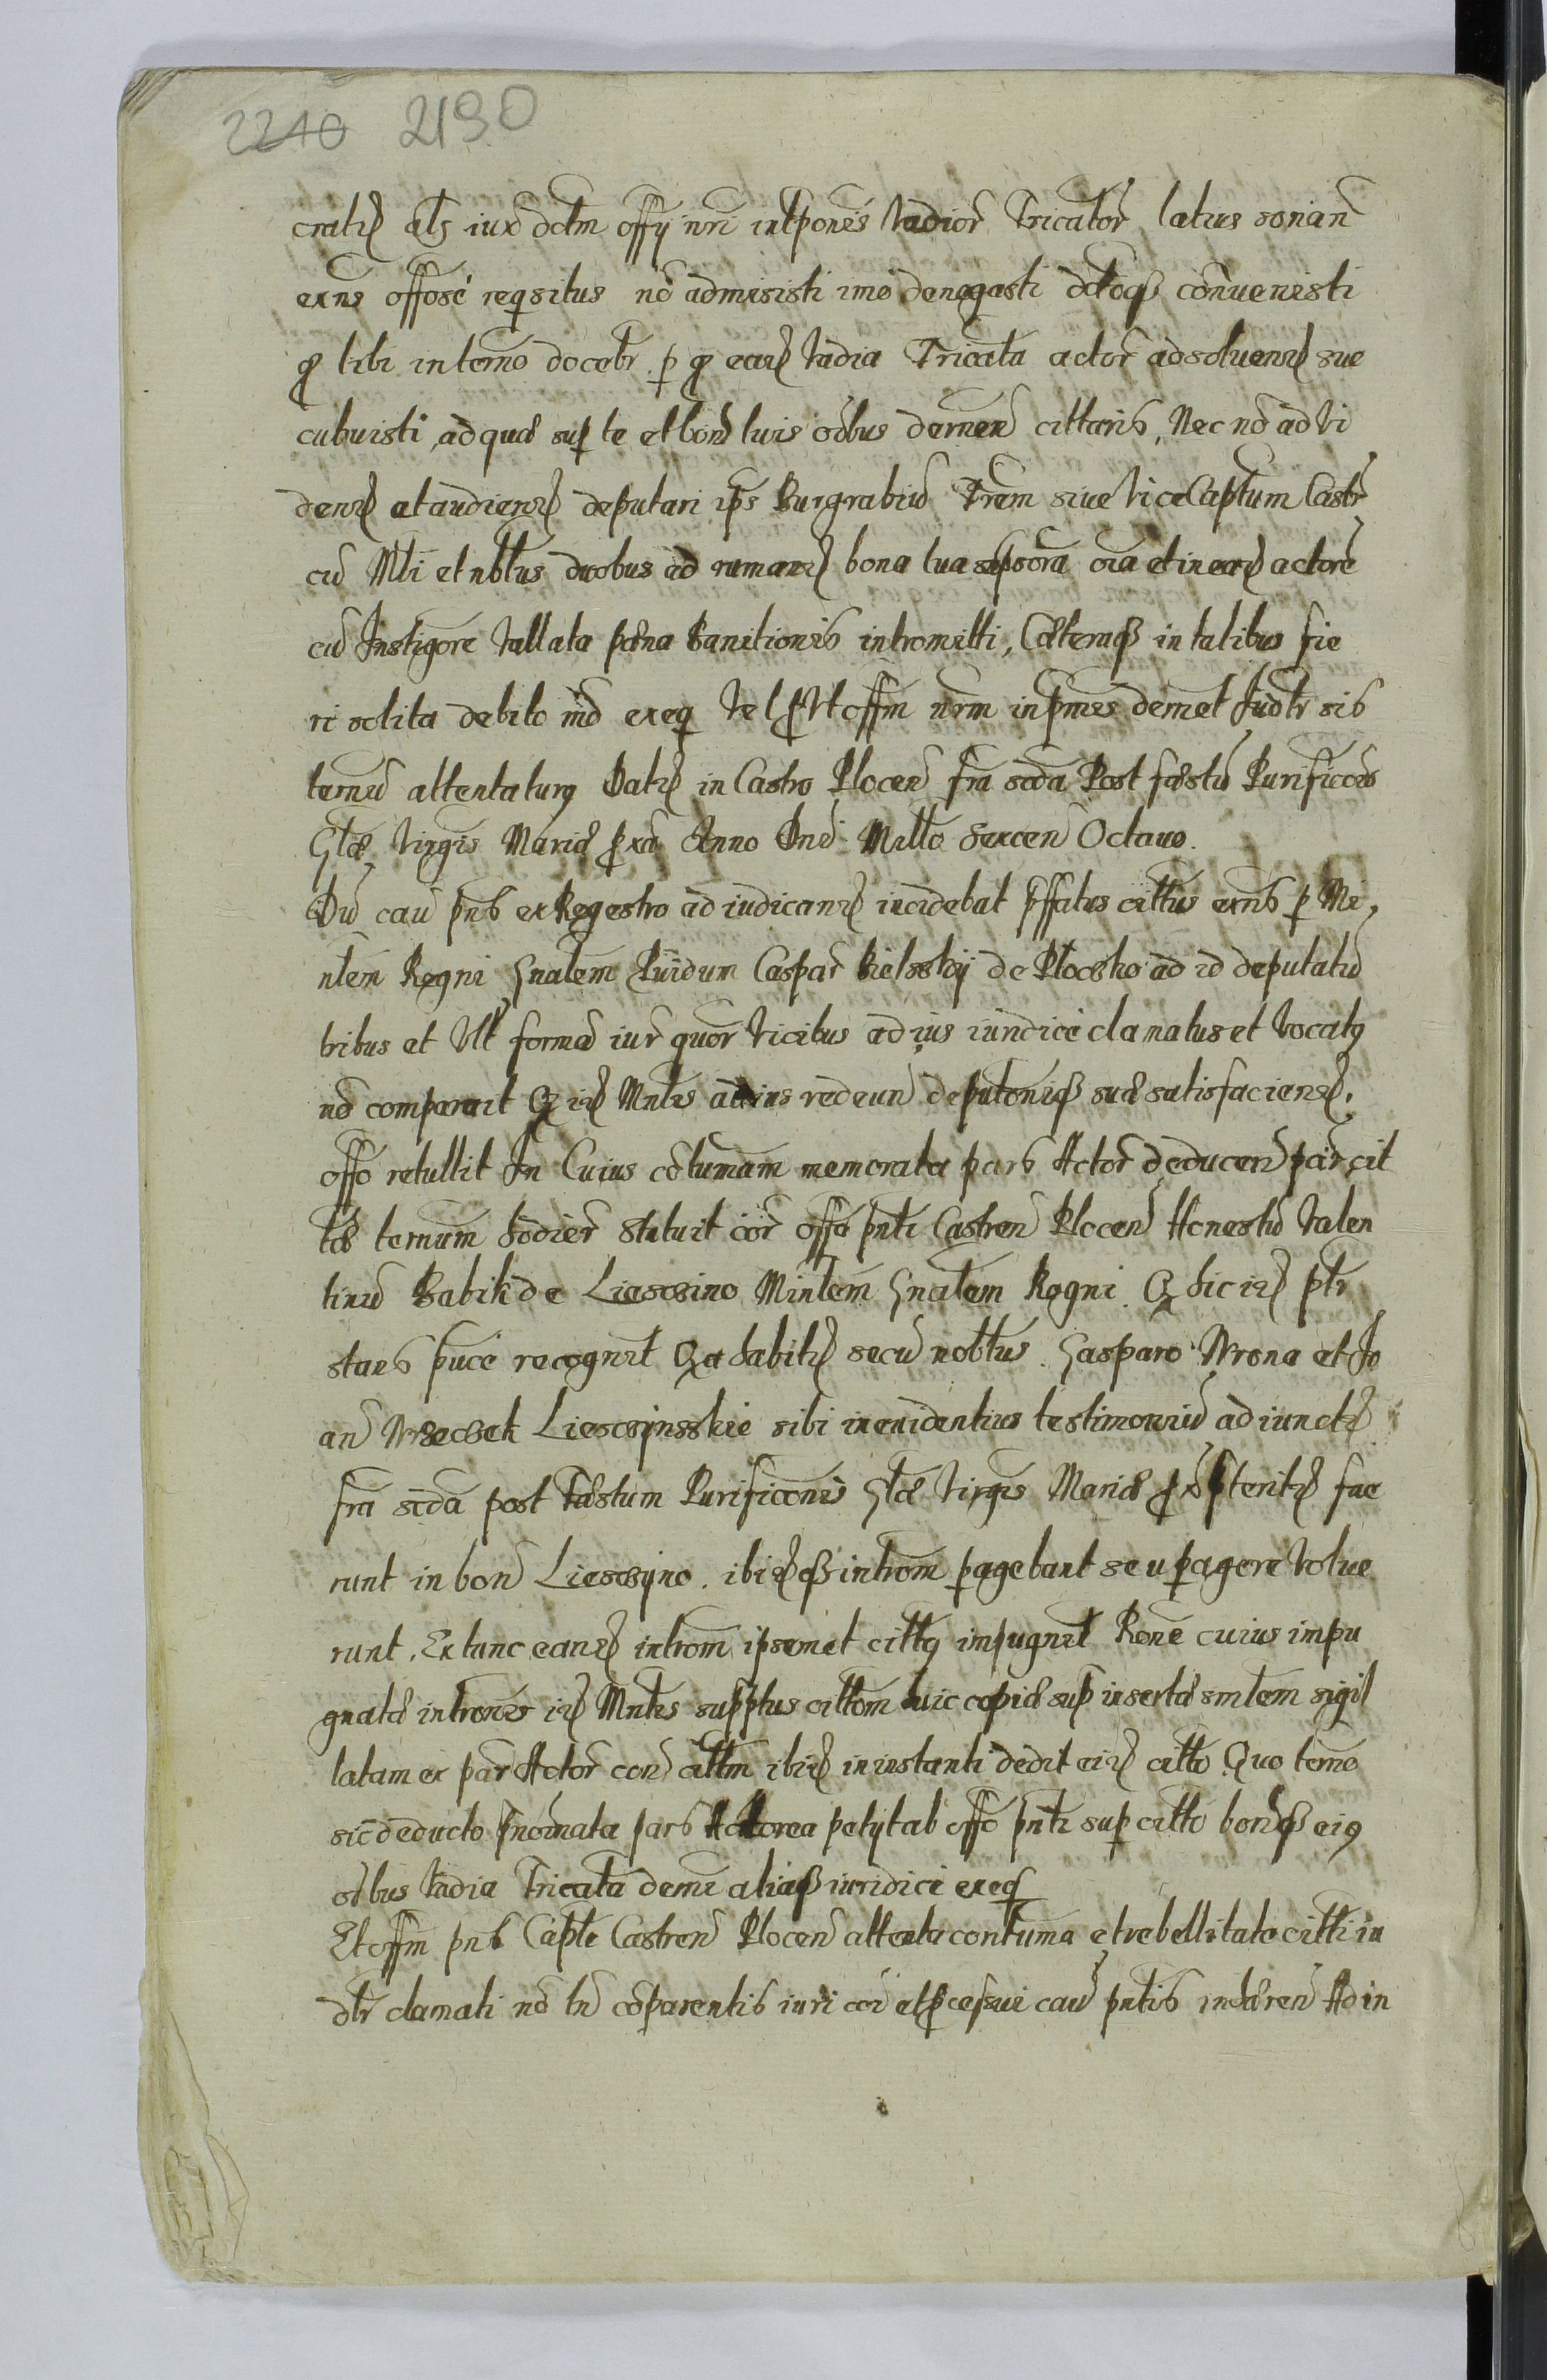 2240 2190
als iux dctm offy nri intponis vadior Tricator latius sonian
exns offose reqsitus nō admisisti imo denegasti dctoqз convenisti
tibi in termo docebr p eans vadia Tricata actor ad solvend sue
cubuisti, ad quae sup te et bonis tuis oībus cittaris, Nec nō ad vi
dend et audiend deputari ips Burgrabiū Trem sive ViceCaptum Castr
cū Mli et nbltus duobus ad bona tua ora et in actore
cū Instigore vallata paena banitionis intromitti, Caeteraqз in talibus fie
ri solita debito mō exeq Vel Ut offm nrm inpmis Judtr sis
ternū attentaturꝯ Datt in Castro Plocen fra scda Post faestū Purificois
Gtae Virgis Mariae pxa Anno Dni Millo Sexcen Octavo.
Dū cau pns ex Regestro ad iudicand incidebat pffatus cittus exns p Mi,
ntem Regni Gnalem Puidum Caspar Bielsskij de Plocsko ad id deputatū
tribus et Ult formā iur quor vicibus ad ius iuridice clamatus et vocatꝯ
nō comparuit Q id Mntis redeun deputoniqз suae satisfaciend.
offo retullit In Cuius cōtumam memorata pars Actor deducen par cit
tae ternum hodier Statuit cor offo pnti Castren Plocen Honestū Valen
tinū Babik de Liesczino Mintem Gnalem Regni Q hic id ptr
stans puce recognit Q habitis secū nobltus Gasparo Wrona et Jo
an Wszeczek Liesczijnsskie sibi in evidentius testimoniū adiunctis
fra scda post faestum Purificonis Gtae Virgis Mariae px pteritis fue
runt in bon Liesczyno. ibidqз introm pagebant seu pagere volue
runt. Ex tunc eand introm ipsemet cittꝯ impugnit Rone cuius impu
gnatae intronis id Mntis supptus cittom huic copiae sup insertae smlem sigil
latam ex par Actor con cittm ibid in instanti dedit eid citto Quo termo
sic deducto pnōmata pars Actorea petijt ab offo pnti sup citto bonisqз eiꝯ
oībus vadia Tricata aliaqз iuridici exeq
Et offm pns Captle Castren Plocen attenta contuma et rebellitate citti iu
dtr clamati nō tn cōparentis iuri cōi et pcessui cau pntis inhaeren Ad in